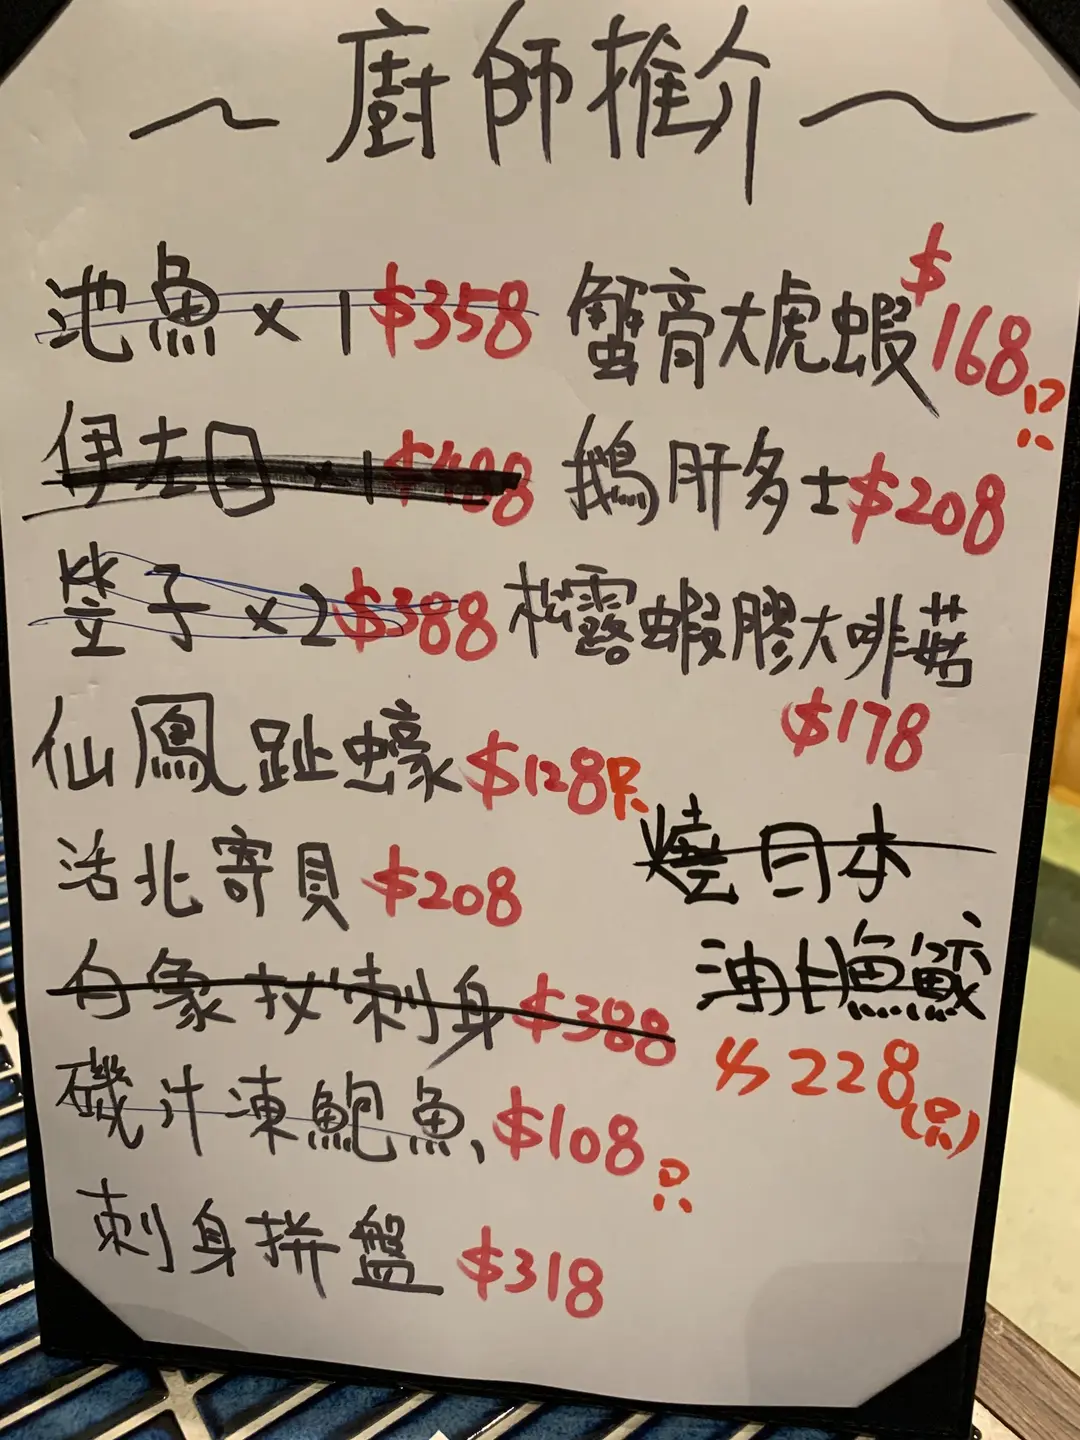 ~廚師推介~
池魚×1 $358
伊左目×1 $488
𩶘子×2 $388
仙鳳趾蠔 $128只
活北寄貝 $208
白象拔刺身 $388
磯汁凍鮑魚、$108只
刺身拼盤 $318
蟹膏大虎蝦 $168只
鵝肝多士 $208
松露蝦膠大啡菇
$178
燒日本
油甘魚鮫
$228(只)